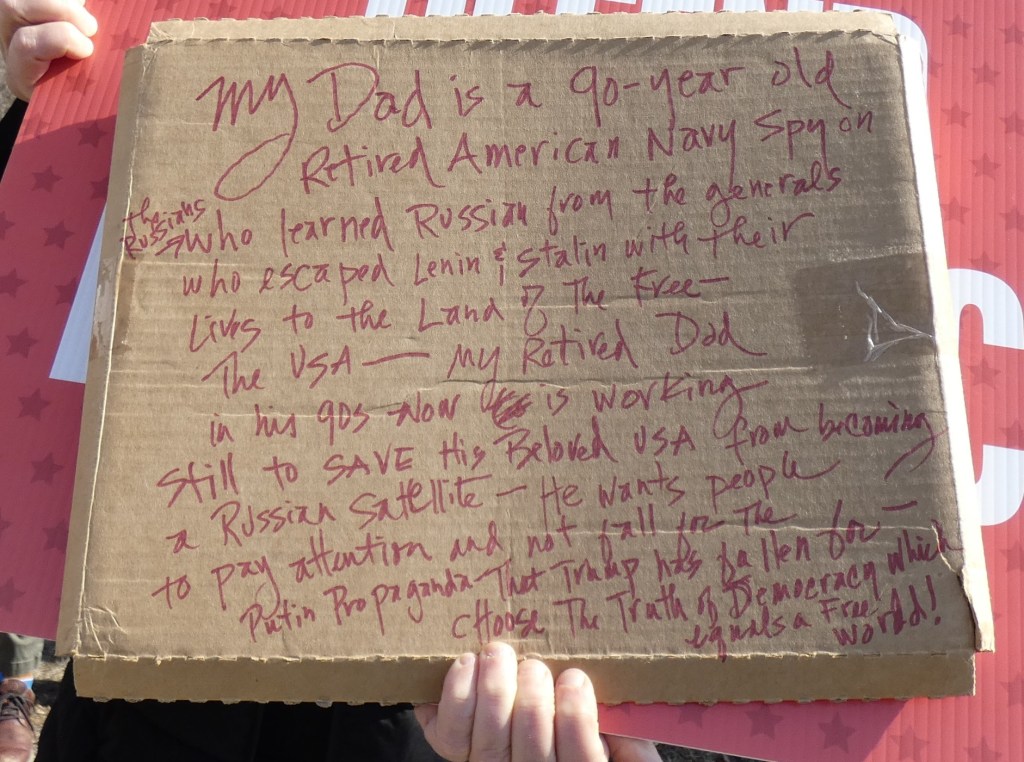 My Dad is a 90-year old
Retired American Navy Spy on
the Russians
who learned Russian from the generals
who escaped Lenin & Stalin with their
Lives to the Land of The Free—
The USA — My Retired Dad
in his 90s now is working
still to SAVE His Beloved USA from becoming
a Russian Satellite — He wants people
to pay attention and not fall for The
Putin Propaganda That Trump has fallen for —
CHoose The Truth of Democracy which
equals a Free
world!